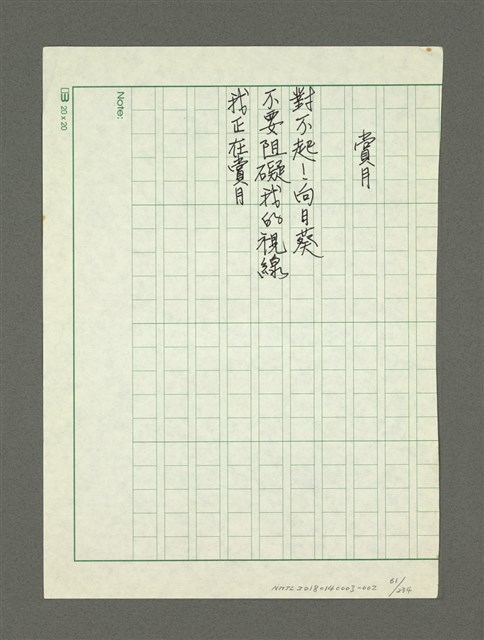 賞月
對不起！向日葵
不要阻礙我的視線
我正在賞月
Note:
20×20
NMTL20180140003-002
61/234